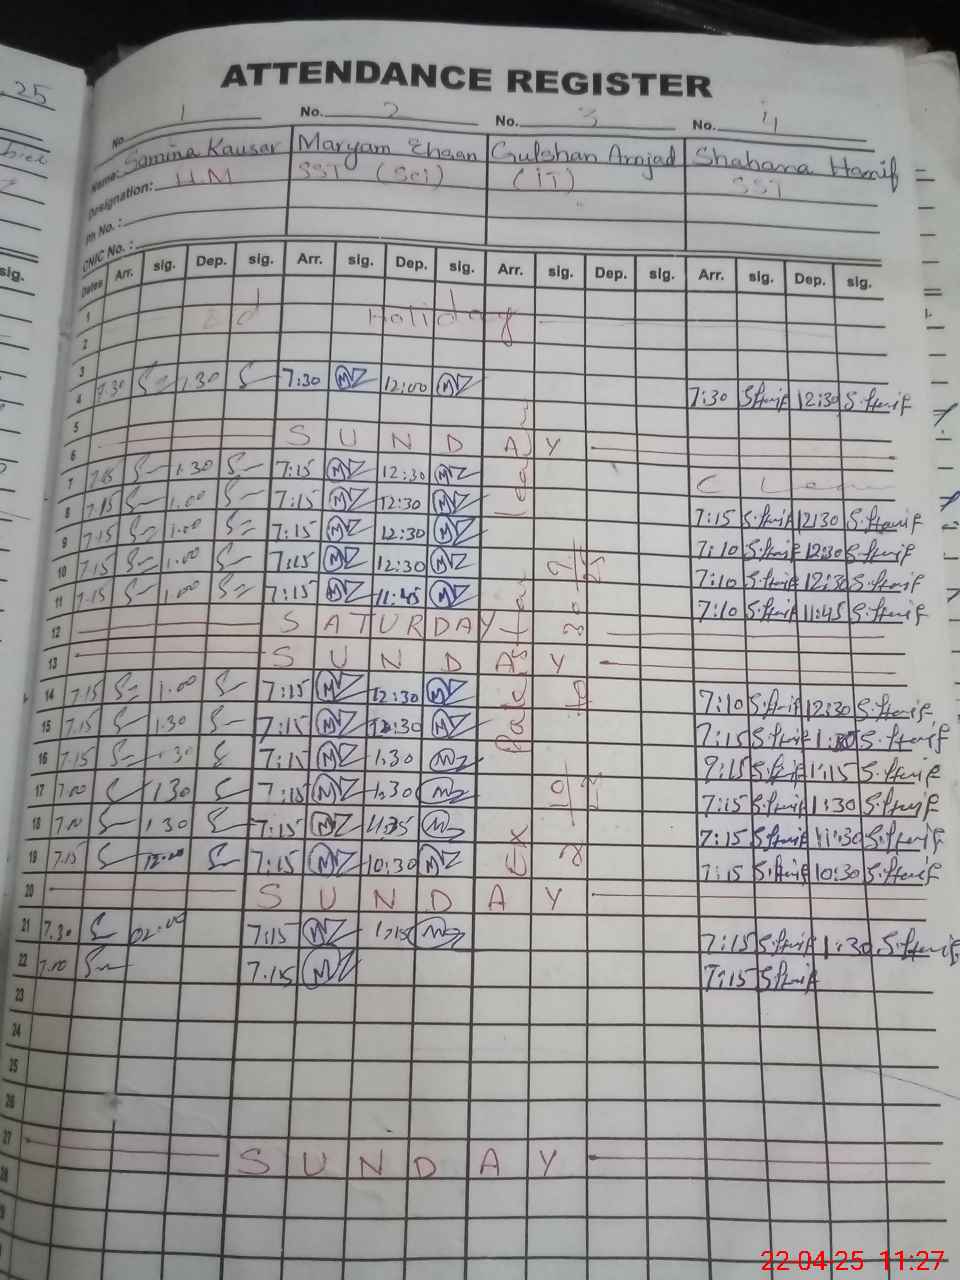 25
ATTENDANCE REGISTER
No. 1 No. 2 No. 3 No. 4
Name: Samina Kausar Maryam Ehsan Gulshan Amjad Shabana Hanif
Designation: H.M SST (Sci) (IT) SST
Ph No.:
CNIC No.:
sig.
Dates Arr. sig. Dep. sig. Arr. sig. Dep. sig. Arr. sig. Dep. sig. Arr. sig. Dep. sig.
1 Eid Holiday
2
3
4 7.30 1.30 7:30 MZ 12:00 MZ 7:30 S.Hanif 12:30 S.Hanif
5
6 SUNDAY
7 7.15 1.30 7:15 MZ 12:30 MZ C Leave
8 7.15 1.00 7:15 MZ 12:30 MZ 7:15 S.Hanif 12:30 S.Hanif
9 7.15 1.00 7:15 MZ 12:30 MZ 7:10 S.Hanif 12:30 S.Hanif
10 7.15 1.00 7:15 MZ 12:30 MZ 7:10 S.Hanif 12:30 S.Hanif
11 7.15 1.00 7:15 MZ 11:45 MZ 7:10 S.Hanif 11:45 S.Hanif
12 SATURDAY
13 SUNDAY
14 7.15 1.00 7:15 MZ 12:30 MZ 7:10 S.Hanif 12:30 S.Hanif
15 7.15 1.30 7:15 MZ 12:30 MZ 7:15 S.Hanif 1:30 S.Hanif
16 7.15 1.30 7:15 MZ 1.30 MZ S.Hanif 1:15 S.Hanif
17 7.00 1.30 7:15 MZ 1.30 MZ 7:15 S.Hanif 1:30 S.Hanif
18 7.00 1.30 7:15 MZ MZ 7:15 S.Hanif 11:30 S.Hanif
19 7.15 12.00 7:15 MZ 10:30 MZ 7:15 S.Hanif 10:30 S.Hanif
20 SUNDAY
21 7.30 02.00 7:15 MZ 1:15 MZ 7:15 S.Hanif 1:30 S.Hanif
22 7.00 7.15 MZ 7:15 S.Hanif
23
24
25
26
27 SUNDAY
28
Ex Pakistan leave
22-04-25 11:27